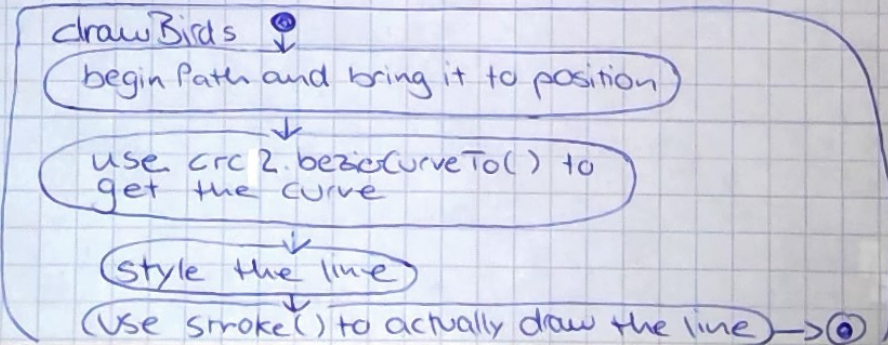 drawBirds
begin Path and bring it to position
use crc2.bezierCurveTo() to
get the curve
style the line
use stroke() to actually draw the line